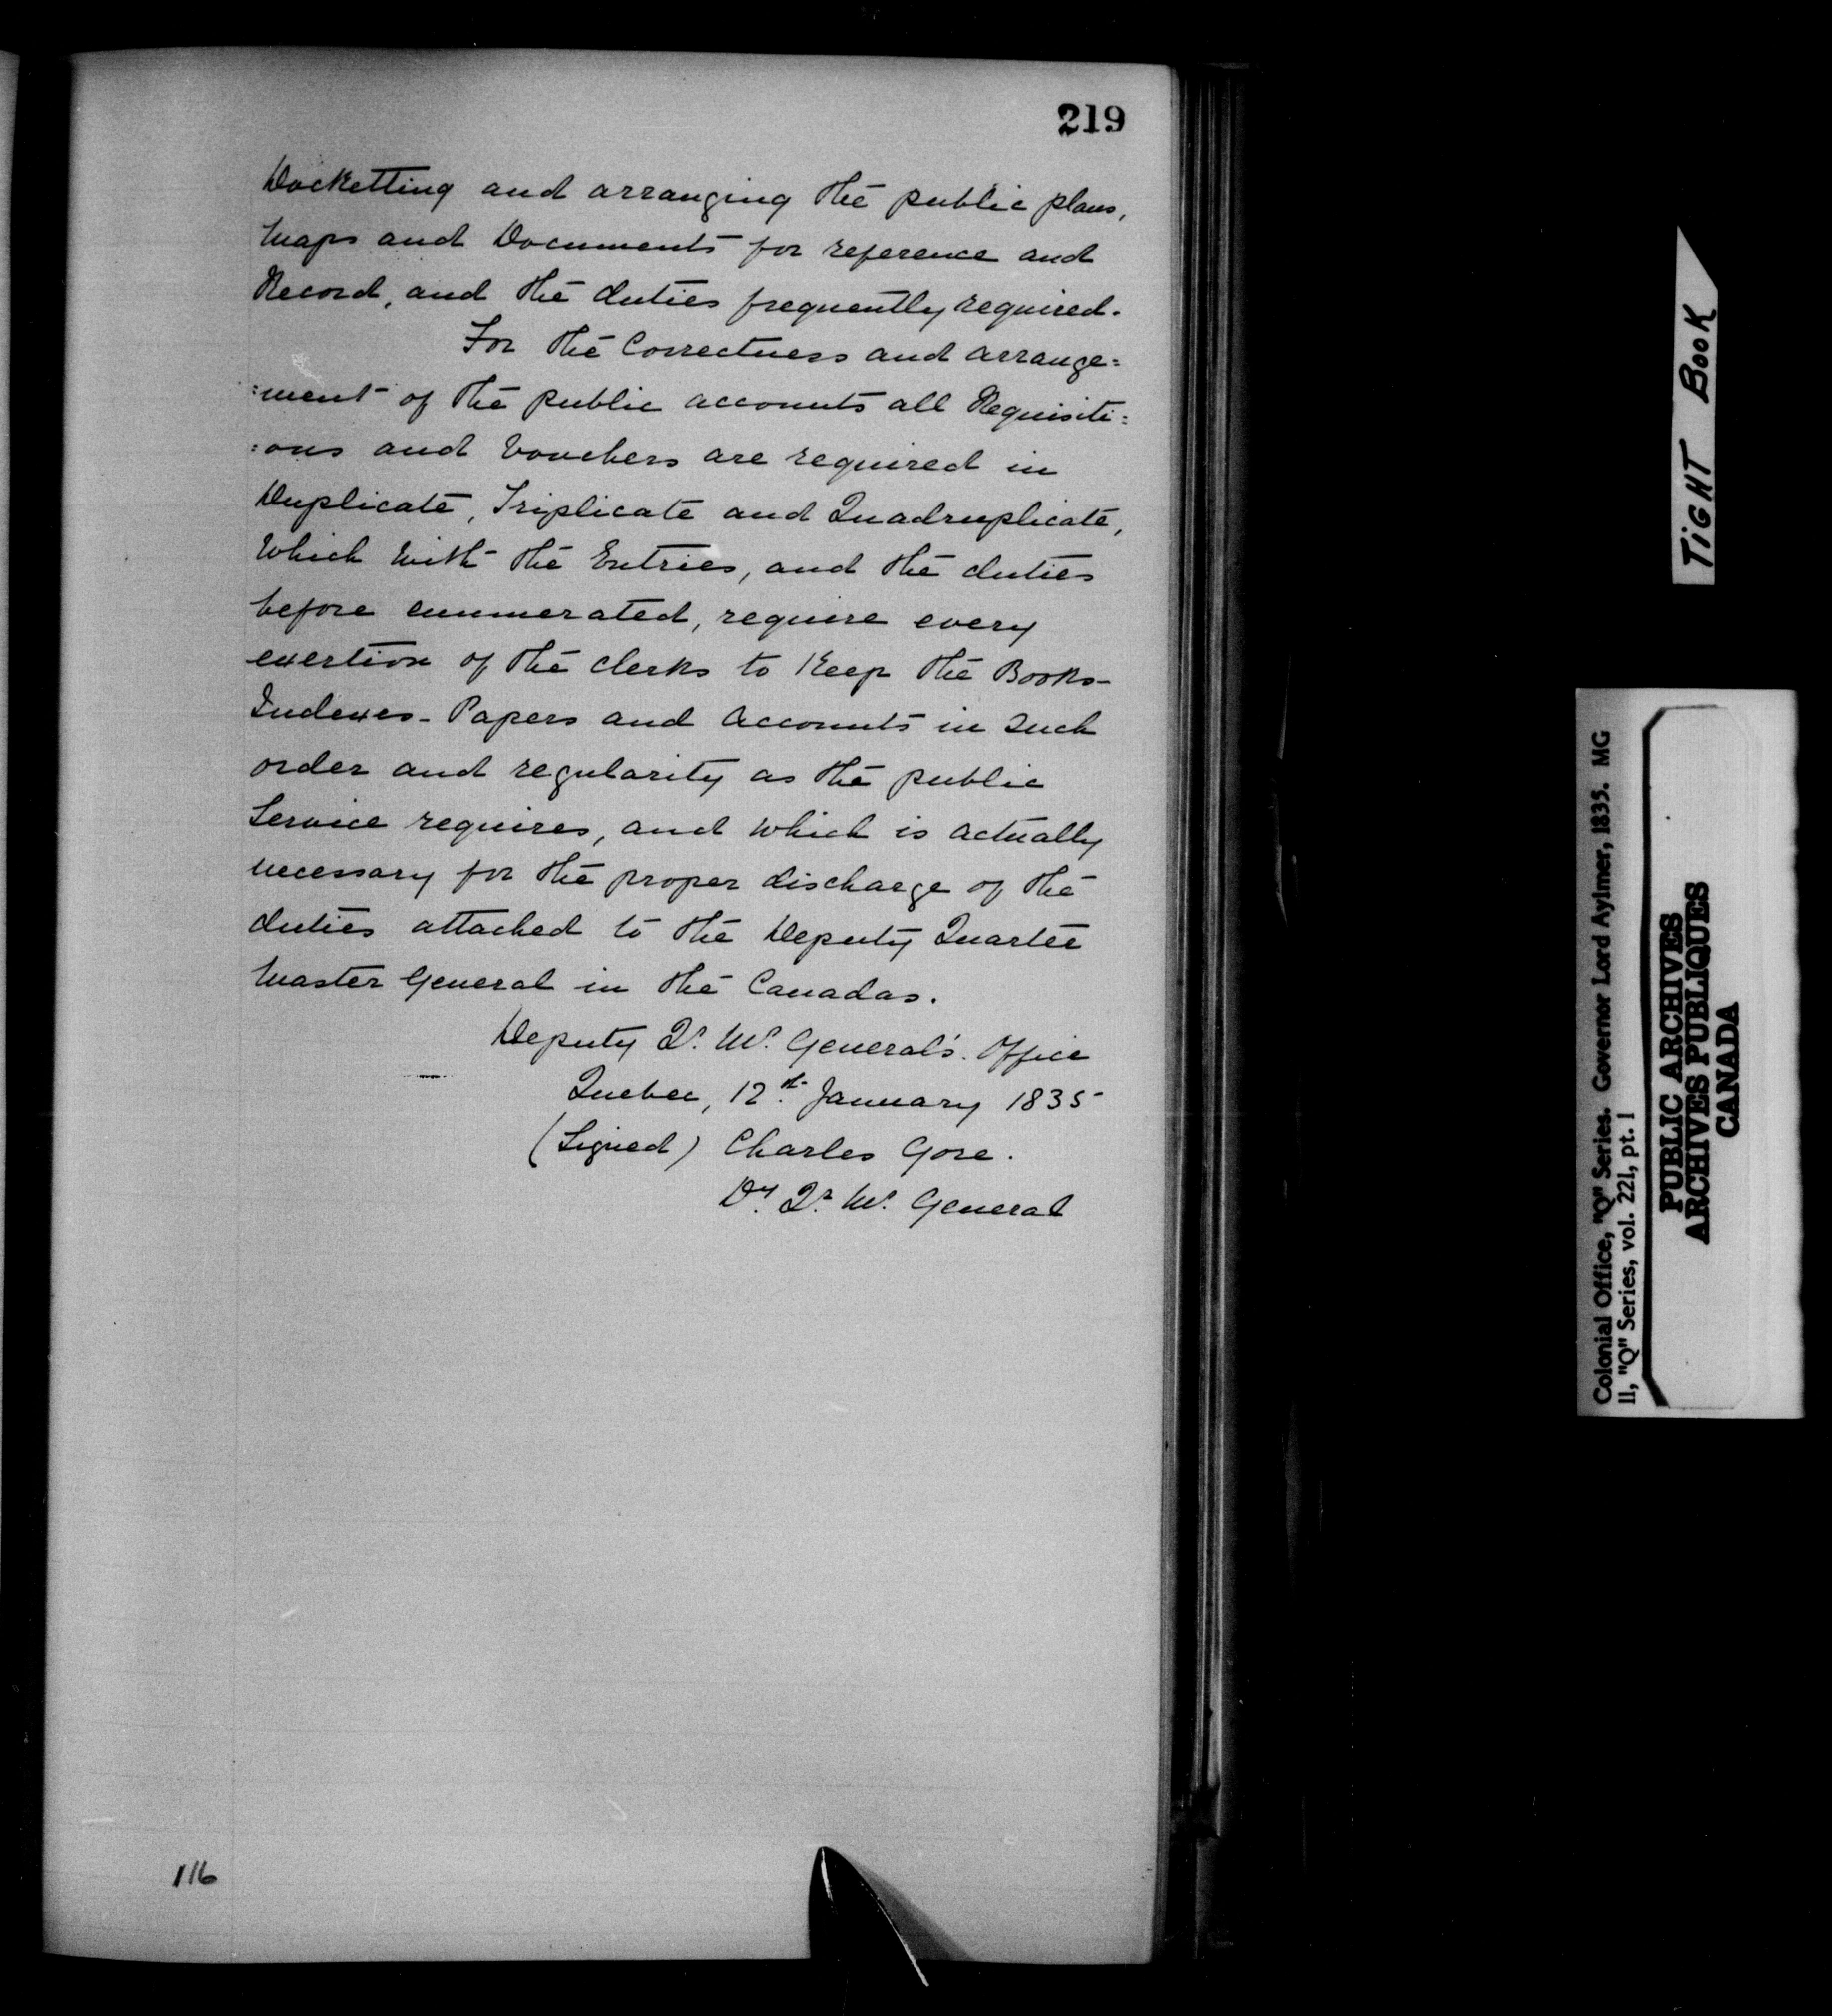 219
Docketting and arranging the public plans,
Maps and Documents for reference and
Record, and the duties frequently required.
For the Correctness and arrange=
=ment of the public accounts all Requisiti=
=ons and Vouchers are required in
Duplicate, Triplicate and Quadruplicate,
Which with the Entries, and the duties
before enumerated, require every
exertion of the Clerks to Keep the Books-
Indexes- Papers and Accounts in Such
order and regularity as the public
Service requires, and which is actually
necessary for the proper discharge of the
duties attached to the Deputy Quarter
Master General in the Canadas.
Deputy Qr. Mr. General's. Office
Quebec, 12th January 1835
(Signed) Charles Gore.
Dy. Qr. Mr. General
116
TIGHT BOOK
Colonial Office, "Q" Series. Governor Lord Aylmer, 1835. MG
11, "Q" Series, vol. 221, pt. 1
PUBLIC ARCHIVES
ARCHIVES PUBLIQUES
CANADA